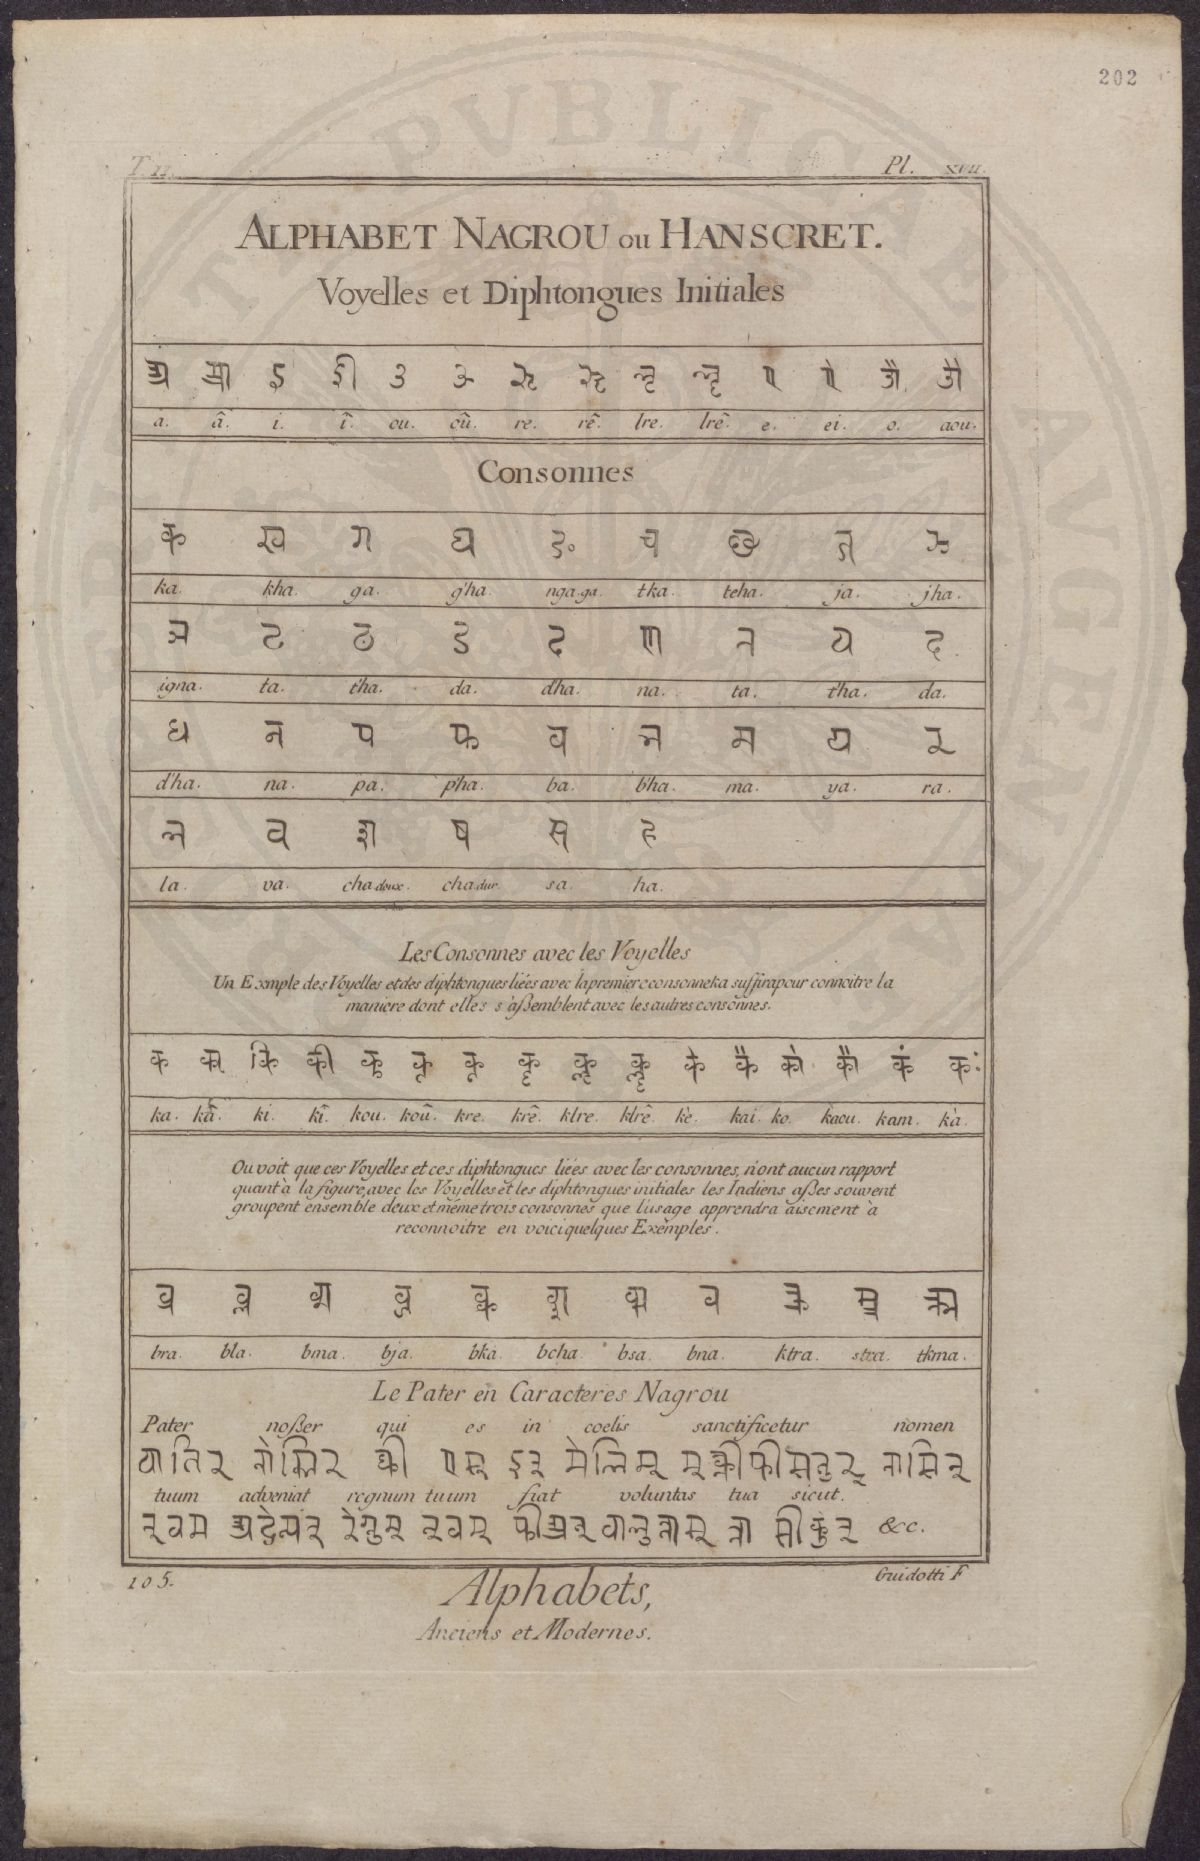 202
T. II. Pl. XVII.
ALPHABET NAGROU ou HANSCRET.
Voyelles et Diphtongues Initiales
अ आ इ ई उ ऊ ऋ ॠ ऌ ॡ ए ऐ ओ औ
a. â. i. î. ou. oû. re. rê. lre. lrê. e. ei. o. aou.
Consonnes
क ख ग घ ङ च छ ज झ
ka. kha. ga. g'ha. nga.ga. tka. teha. ja. jha.
ञ ट ठ ड ढ ण त थ द
igna. ta. t'ha. da. d'ha. na. ta. t'ha. da.
ध न प फ ब भ म य र
d'ha. na. pa. p'ha. ba. b'ha. ma. ya. ra.
ल व श ष स ह
la. va. cha doux. cha dur. sa. ha.
Les Consonnes avec les Voyelles
Un Exmple des Voyelles et des diphtongues liées avec la premiere consonne ka suffira pour connoitre la
maniere dont elles s'aßemblent avec les autres consonnes.
क का कि की कु कू कृ कॄ कॢ कॣ के कै को कौ कं कः
ka. kâ. ki. kî. kou. koû. kre. krê. klre. klrê. kè. kai. ko. kaou. kam. kà.
Ou voit que ces Voyelles et ces diphtongues liées avec les consonnes, n'ont aucun rapport
quant à la figure, avec les Voyelles et les diphtongues initiales les Indiens aßes souvent
groupent ensemble deux et même trois consonnes que l'usage apprendra aisement à
reconnoitre en voici quelques Exemples.
bra. bla. bma. bja. bka. bcha. bsa. bna. ktra. stra. tkma.
Le Pater en Caracteres Nagrou
Pater noßer qui es in coelis sanctificetur nomen
tuum adveniat regnum tuum fiat voluntas tua sicut.
&c.
105. Guidotti F
Alphabets,
Anciens et Modernes.